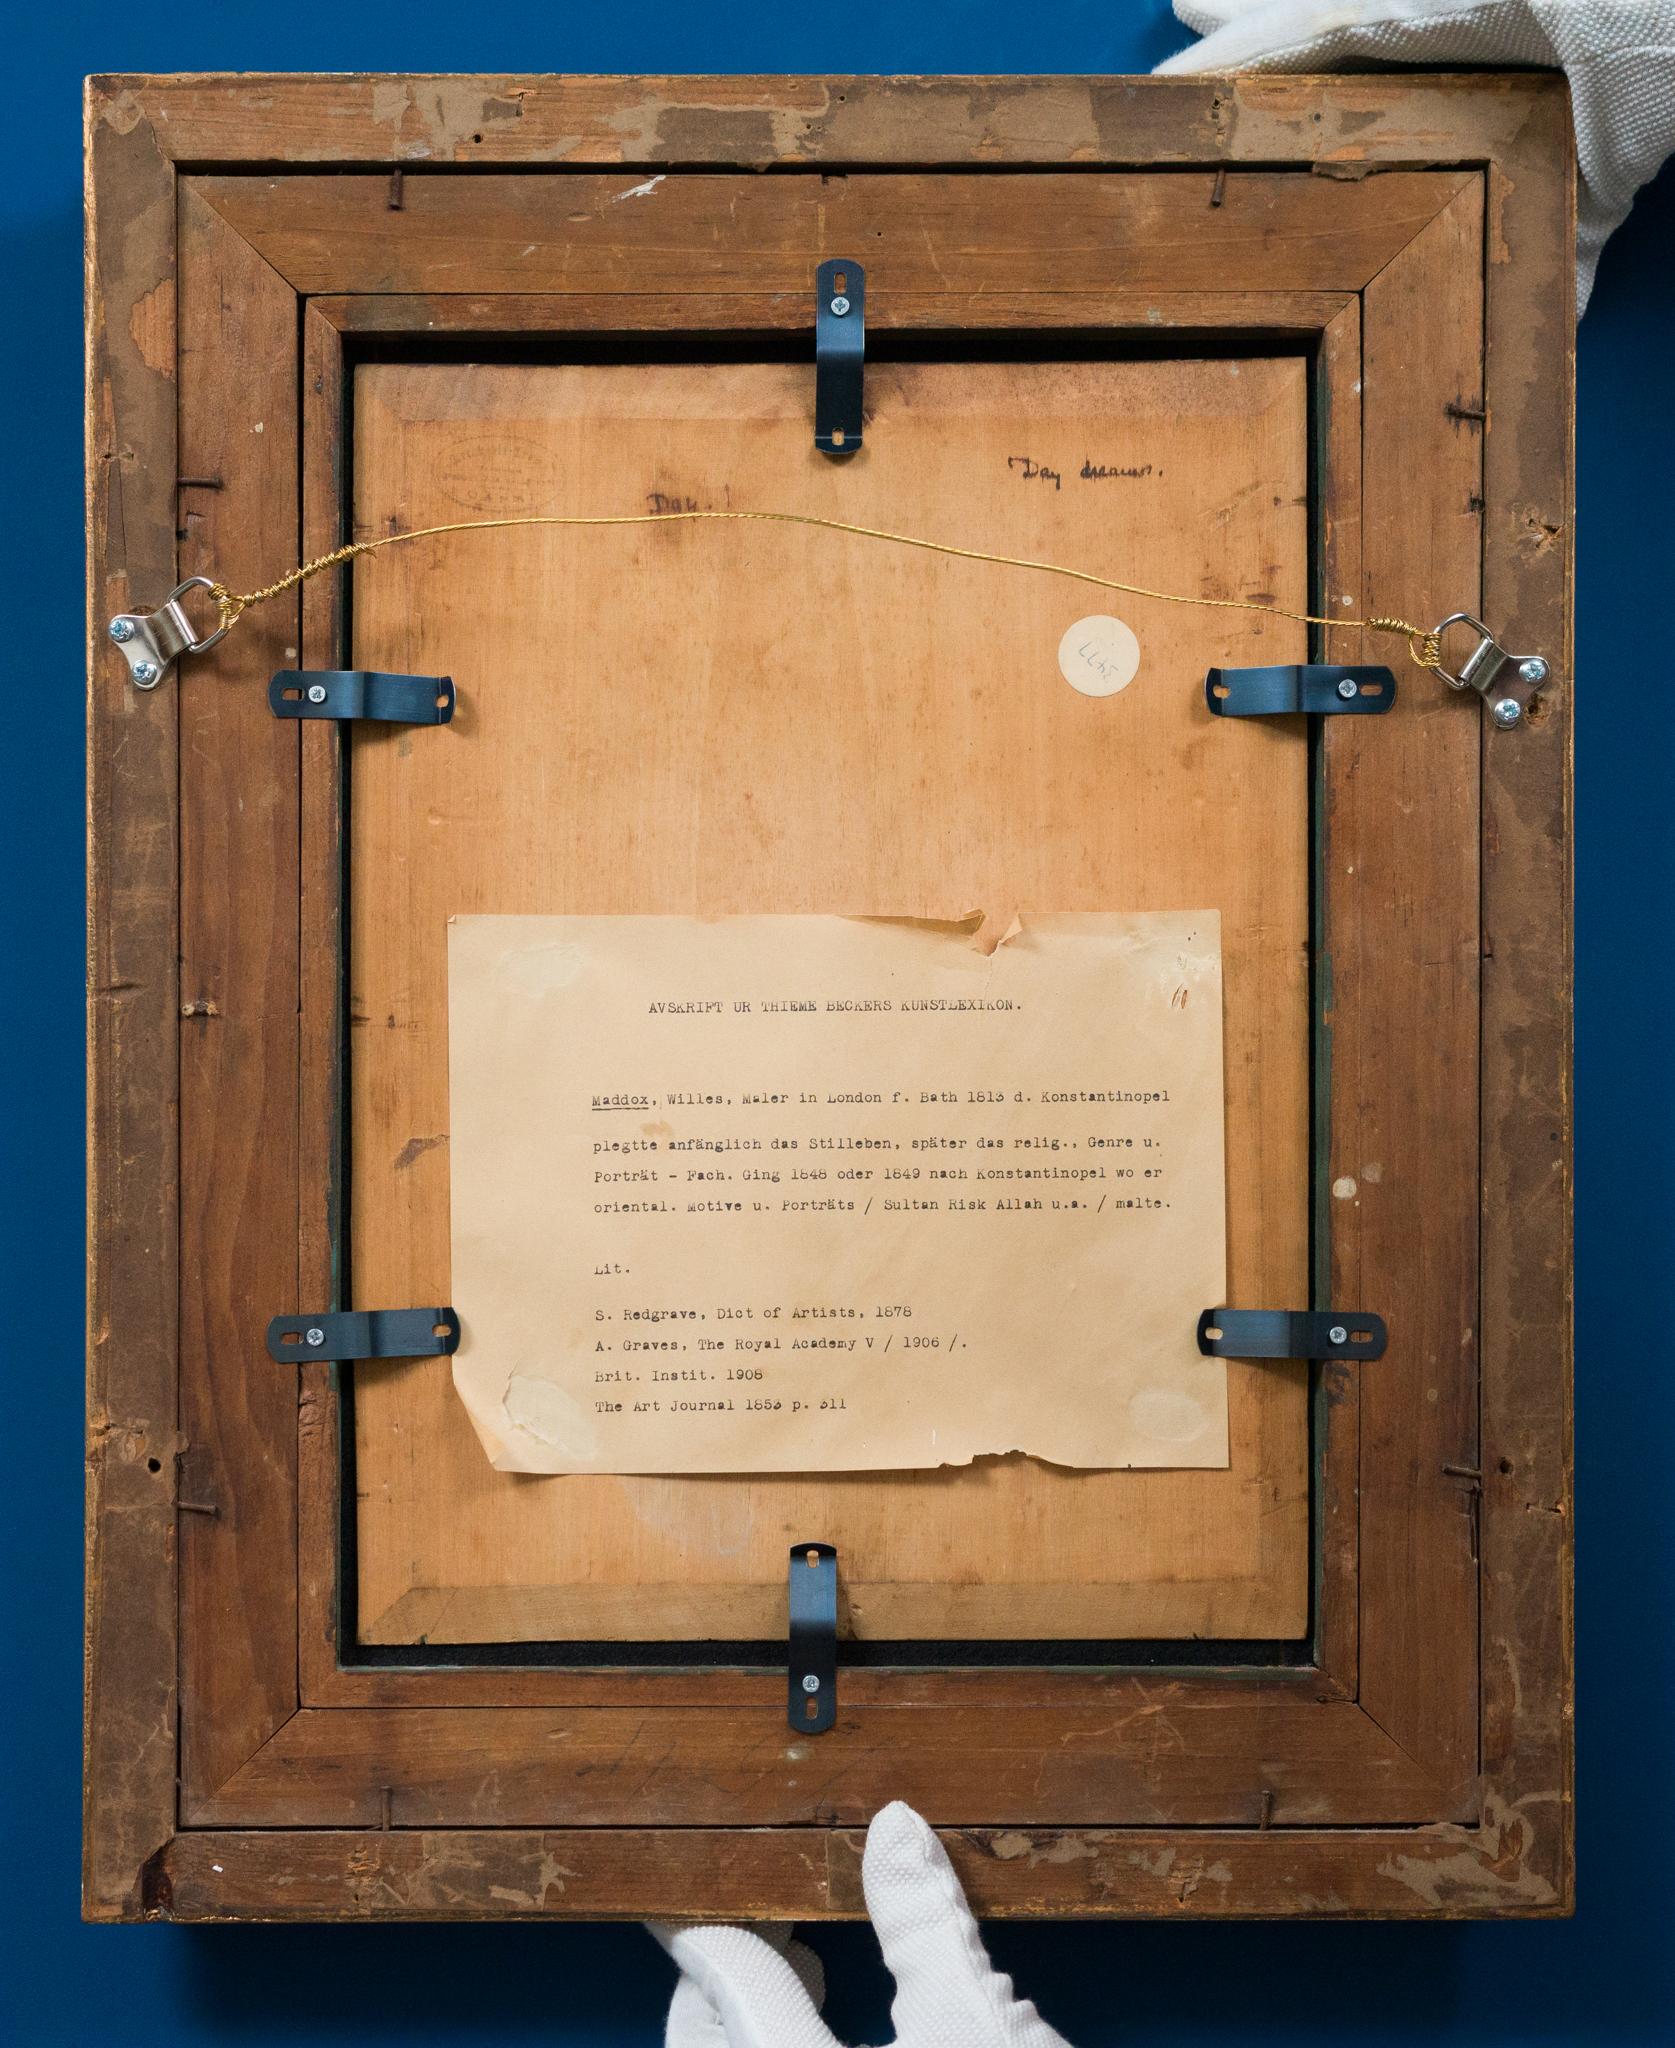 "Day dreams.
Day
3477
AVSKRIFT UR THIEME BECKERS KUNSTLEXIKON.
Maddox, Willes, Maler in London f. Bath 1813 d. Konstantinopel
plegtte anfänglich das Stilleben, später das relig., Genre u.
Porträt - Fach. Ging 1848 oder 1849 nach Konstantinopel wo er
oriental. Motive u. Porträts / Sultan Risk Allah u.a. / malte.
Lit.
S. Redgrave, Dict of Artists, 1878
A. Graves, The Royal Academy V / 1906 /.
Brit. Instit. 1908
The Art Journal 1853 p. 311